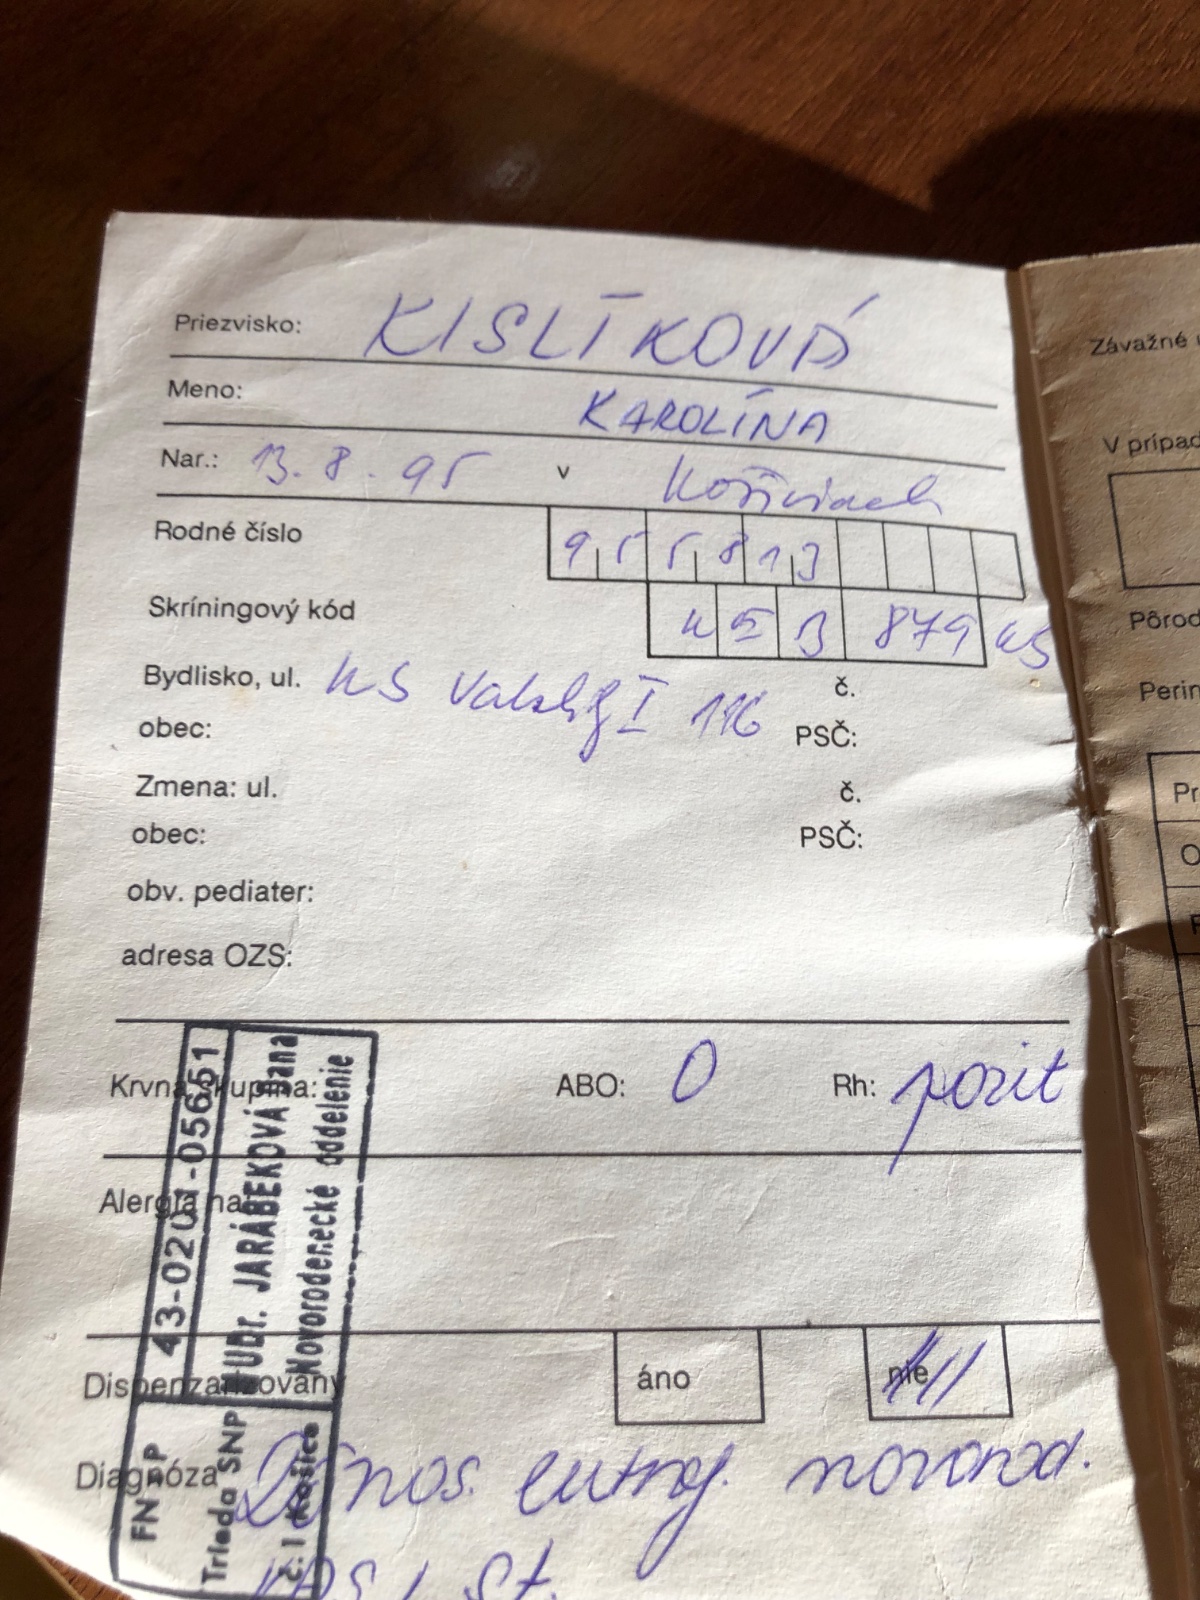 Priezvisko: KISLÍKOVÁ
Meno: KAROLÍNA
Nar.: 13. 8. 95 v Košiciach
Rodné číslo 9 5 5 8 1 3
Skríningový kód 879 KS
Bydlisko, ul. KS I 116 č.
obec: PSČ:
Zmena: ul. č.
obec: PSČ:
obv. pediater:
adresa OZS:
Krvná skupina: ABO: 0 Rh: pozit
Alergia na
Dispenzarizovaný áno nie
Diagnóza nos. eutrof. novorod.
I. st.
43-0201-05651
MUDr. JARÁBEKOVÁ Jana
Novorodenecké oddelenie
FN
Trieda SNP
č. 1 Košice
Závažné
V prípad
Pôrod
Perin
Pr
O